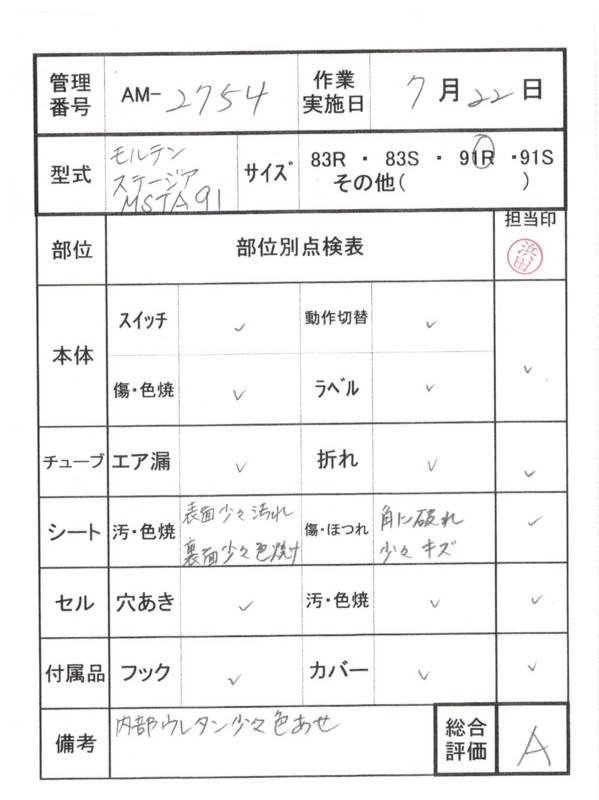 管理番号 AM-2754 作業実施日 7月22日
型式 モルテン ステージア MSTA91 サイズ 83R ・ 83S ・ 91R ・91S
その他( )
部位 部位別点検表 担当印
浜田
本体 スイッチ ✓ 動作切替 ✓
傷・色焼 ✓ ラベル ✓ ✓
チューブ エア漏 ✓ 折れ ✓ ✓
シート 汚・色焼 表面少々汚れ 裏面少々色焼け 傷・ほつれ 角に破れ 少々キズ ✓
セル 穴あき ✓ 汚・色焼 ✓ ✓
付属品 フック ✓ カバー ✓ ✓
備考 内部ウレタン少々色あせ 総合評価 A